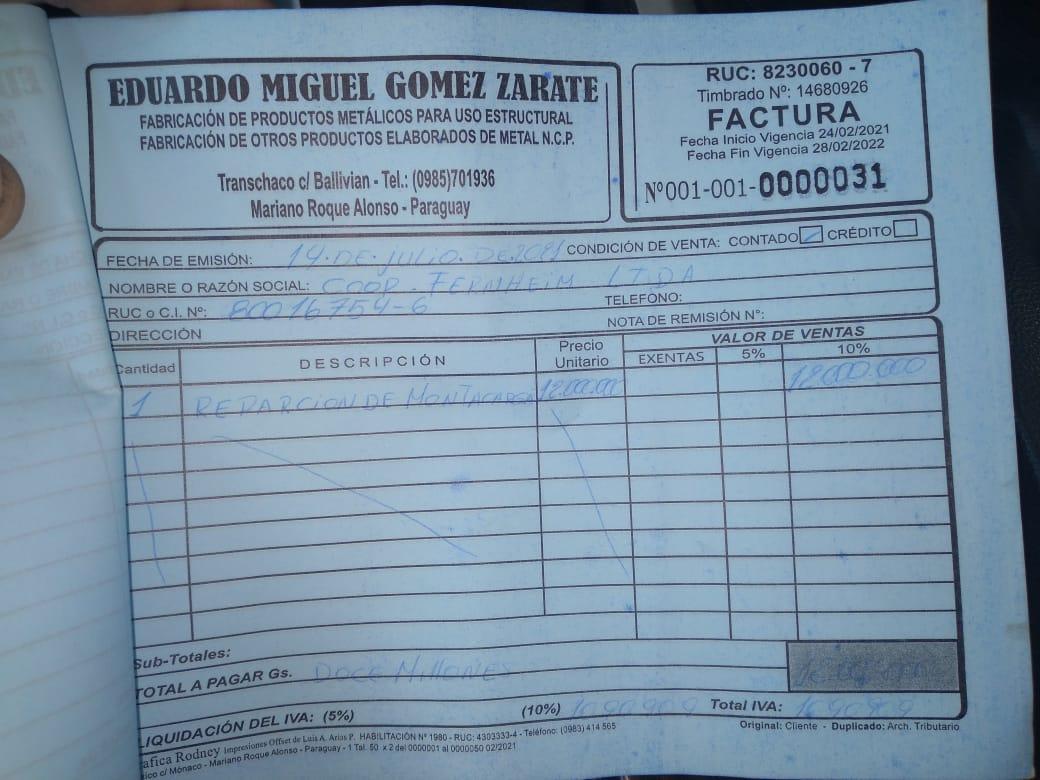 EDUARDO MIGUEL GOMEZ ZARATE
FABRICACIÓN DE PRODUCTOS METÁLICOS PARA USO ESTRUCTURAL
FABRICACIÓN DE OTROS PRODUCTOS ELABORADOS DE METAL N.C.P.
Transchaco c/ Ballivian - Tel.: (0985)701936
Mariano Roque Alonso - Paraguay
RUC: 8230060 - 7
Timbrado Nº: 14680926
FACTURA
Fecha Inicio Vigencia 24/02/2021
Fecha Fin Vigencia 28/02/2022
Nº001-001-0000031
FECHA DE EMISIÓN: 14.DE.julio.DE.2021 CONDICIÓN DE VENTA: CONTADO CRÉDITO
NOMBRE O RAZÓN SOCIAL: COOP. FERNHEIM LTDA
RUC o C.I. Nº: 80016754-6 TELEFÓNO:
DIRECCIÓN NOTA DE REMISIÓN Nº:
Cantidad DESCRIPCIÓN Precio Unitario VALOR DE VENTAS
EXENTAS 5% 10%
1 REPARCION DE MONTACARGA 12.000.000 12.000.000
Sub-Totales:
TOTAL A PAGAR Gs. DOCE MILLONES 12.000.000
LIQUIDACIÓN DEL IVA: (5%) (10%) 1090909 Total IVA: 1090909
Rodney Impresiones Offset de Luis A. Arios P. HABILITACIÓN Nº 1980 - RUC: 4303333-4 - Teléfono: (0983) 414 565
c/ Mónaco - Mariano Roque Alonso - Paraguay - 1 Tal. 50 x 2 del 0000001 al 0000050 02/2021
Original: Cliente - Duplicado: Arch. Tributario